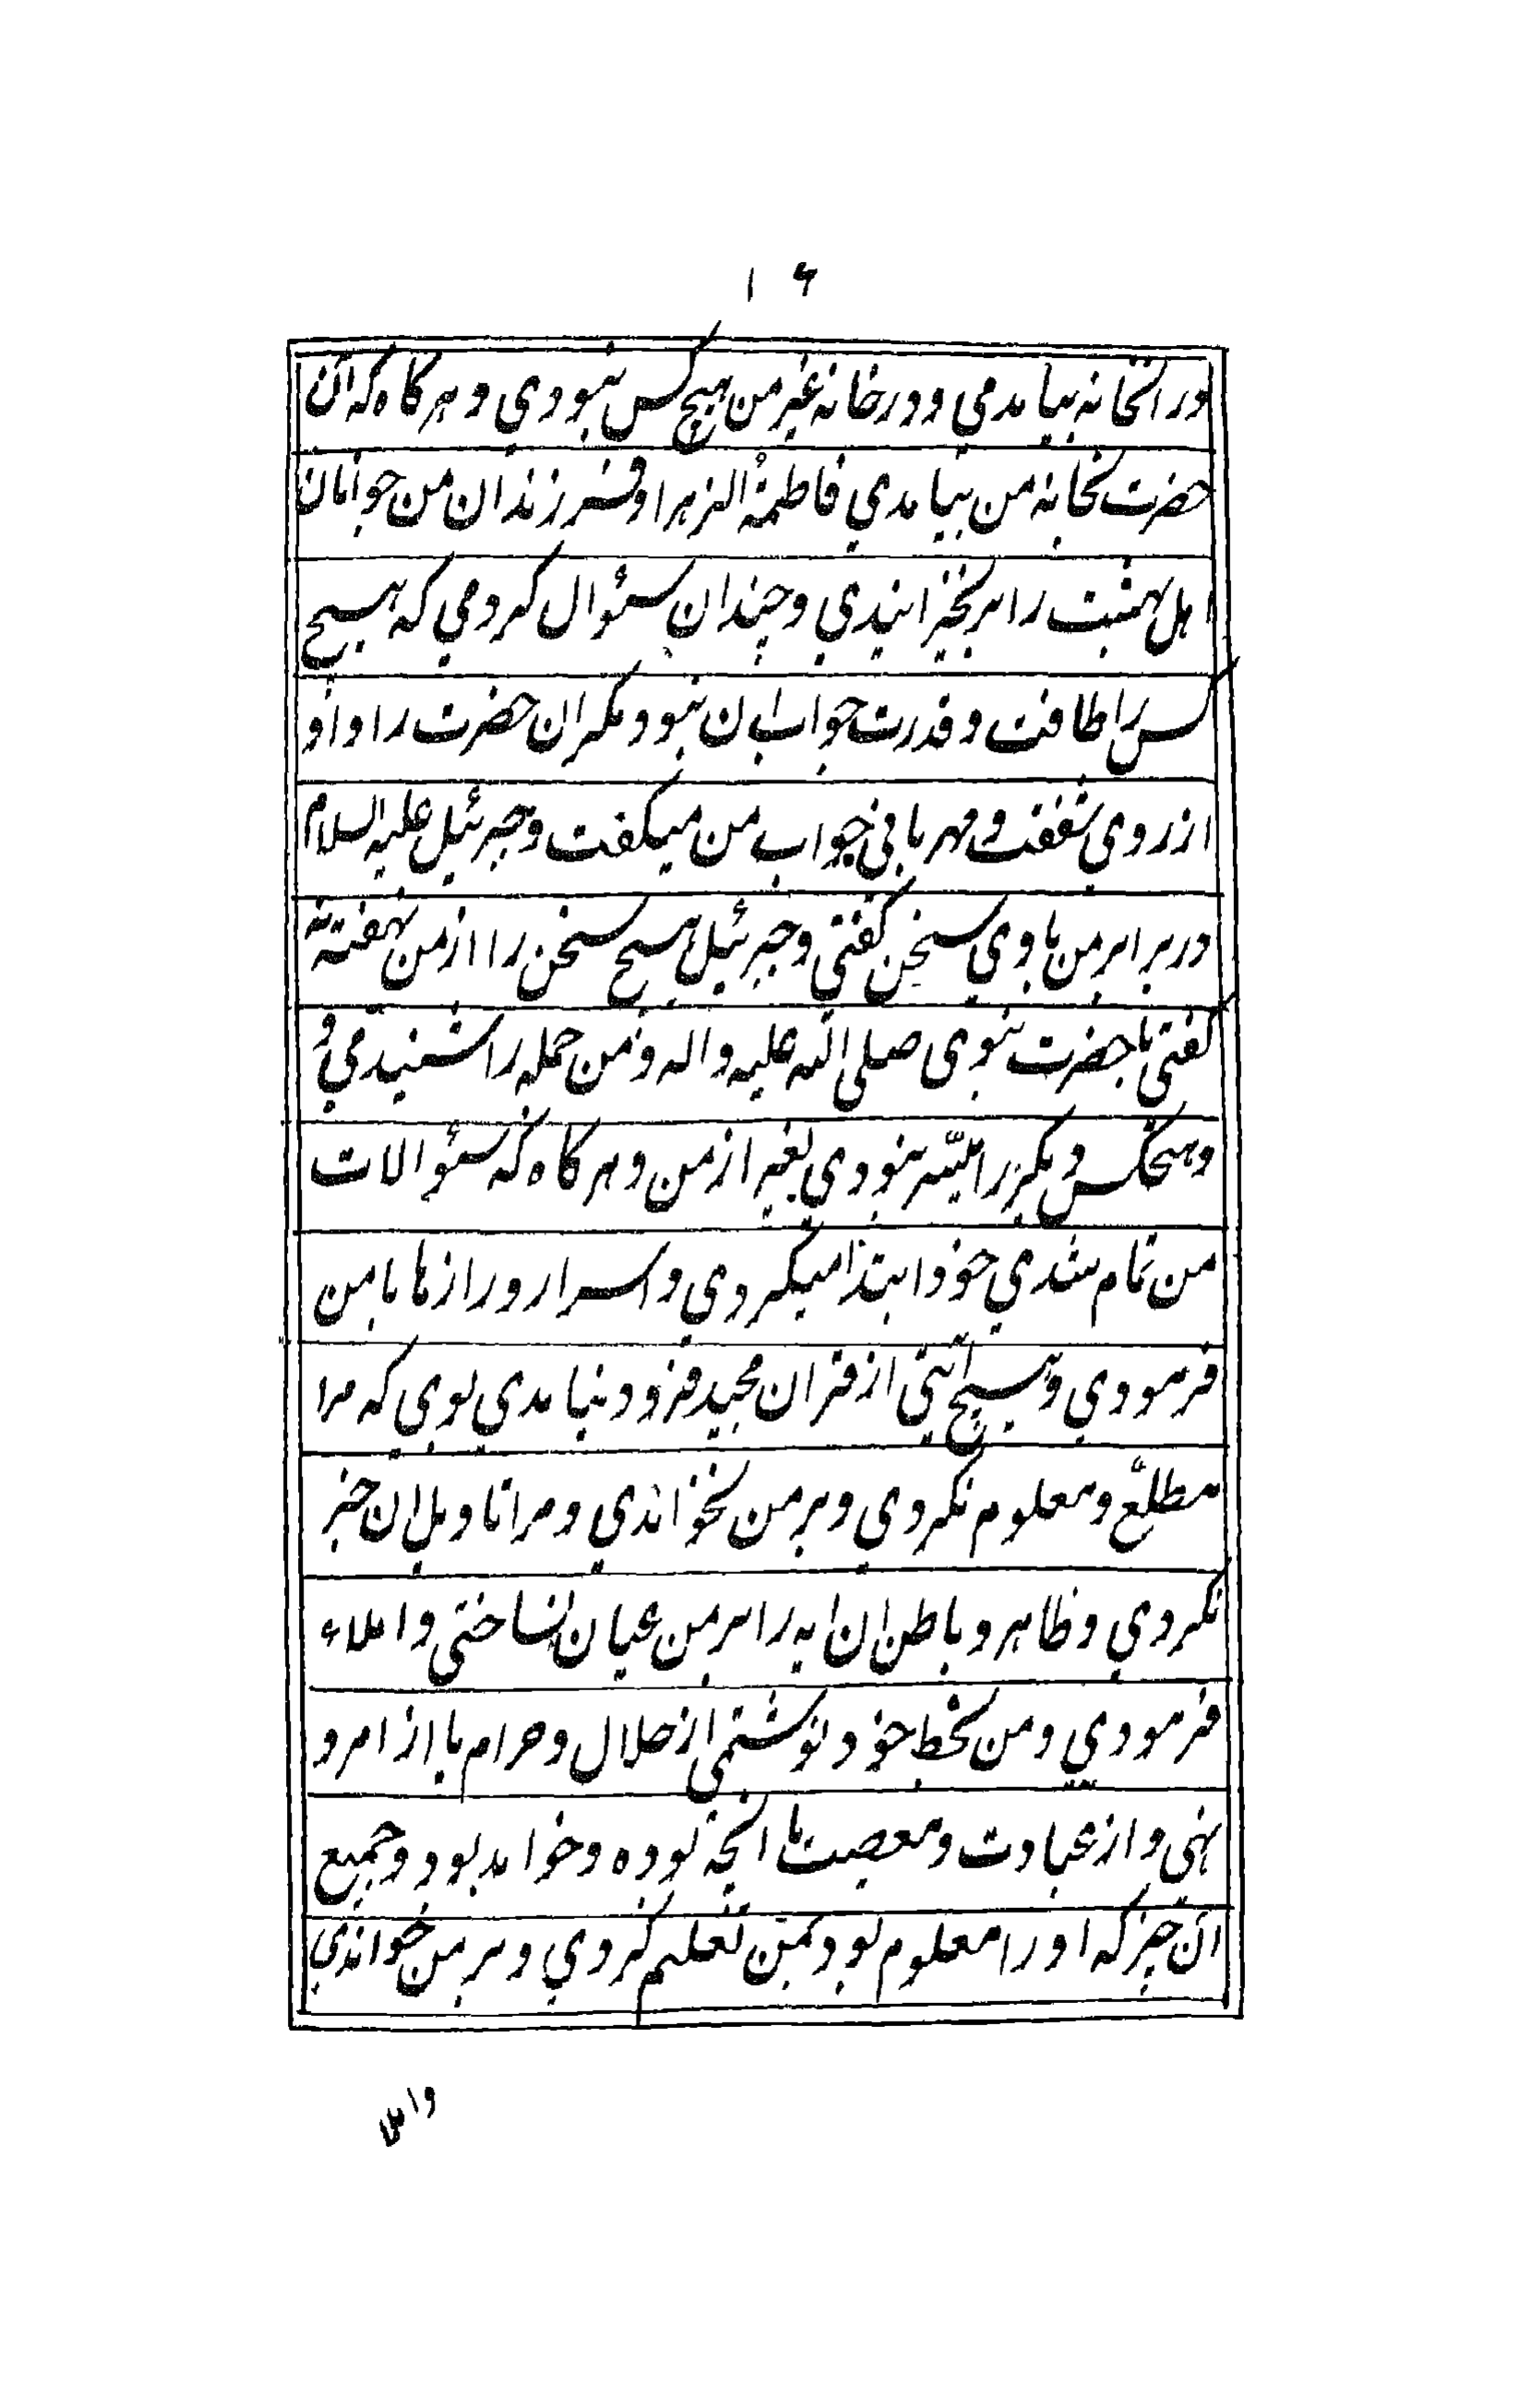 ۱۶
در انخانه بیامدمی و در خانه غیر من هیچکس نبودی و هرگاه که آن
حضرت بخانه من بیامدی فاطمة الزهرا و فرزندان من جوانان
اهل بهشت را برنخیزانیدی و چندان سئوال کردمی که هیچ
کس را طاقت و قدرت جواب ان نبود مگر ان حضرت را و او
از روی شفقت و مهربانی جواب من میگفت و جبرئیل علیه السلام
در برابر من با وی سخن گفتی و جبرئیل هیچ سخن را از من نهفته نه
گفتی با حضرت نبوی صلی الله علیه و اله و من جمله را شنیدمی و
و هیچکس دیگر را میسّر نبودی بغیر از من و هرگاه که سئوالات
من تمام شدی خود ابتدا میکردی و اسرار و رازها با من
فرمودی و هیچ آیتی از قران مجید فرود نیامدی بوی که مرا
مطلّع و معلوم نکردی و بر من نخواندی و مرا تاویل ان خبر
نکردی و ظاهر و باطن ان ایه را بر من عیان نساختی و املاء
فرمودی و من بخط خود نوشتمی از حلال و حرام با از امر و
نهی و از عبادت و معصیت تا انچه بوده و خواهد بود و جمیع
آن چیز که او را معلوم بود بمن تعلیم کردی و بر من خواندی